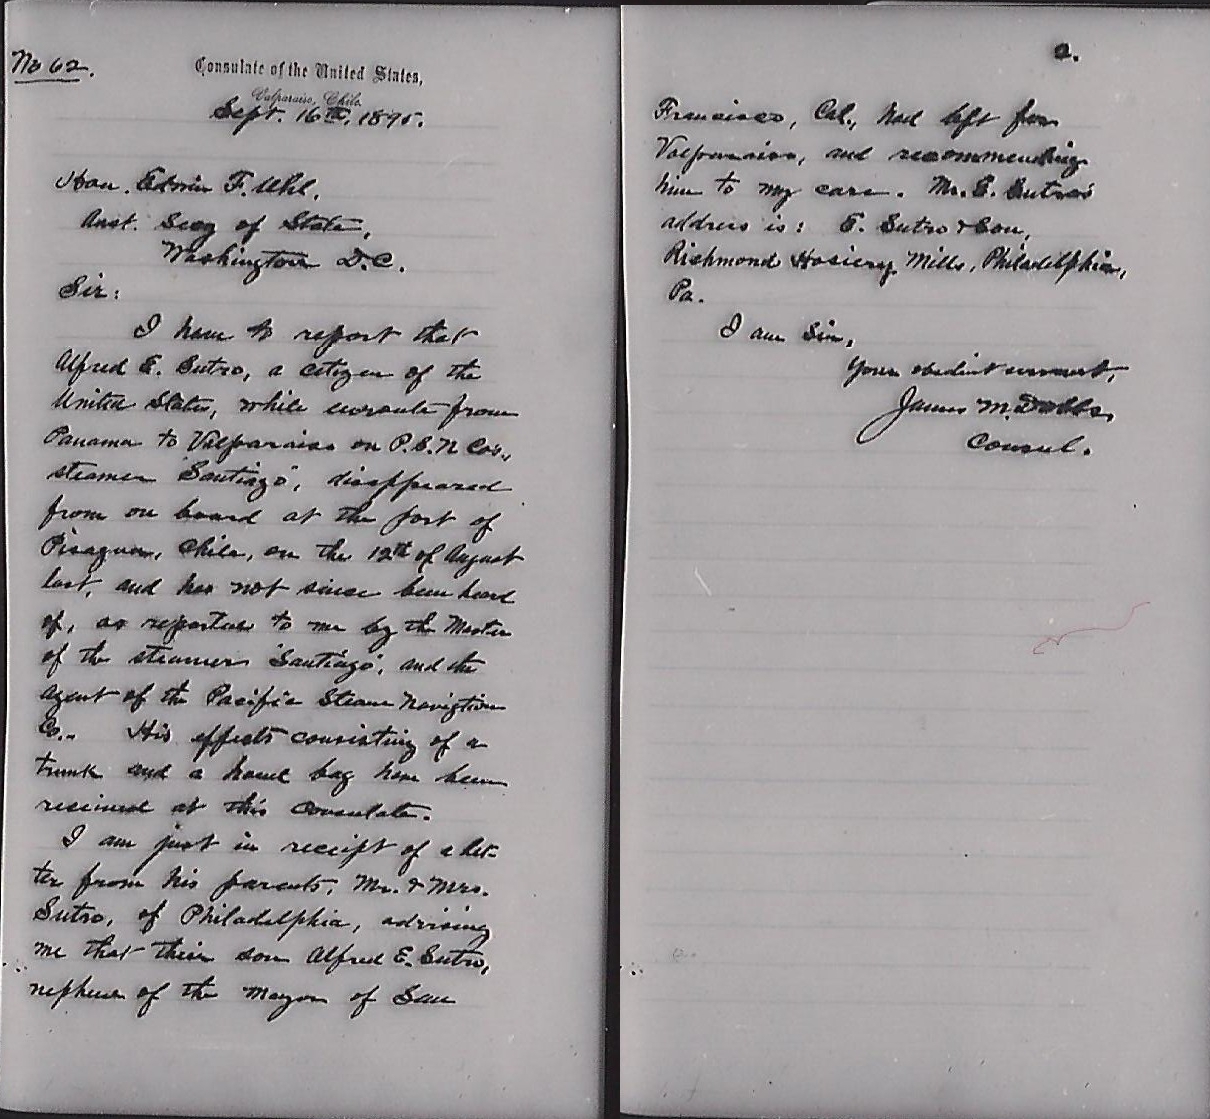 No 62.
Consulate of the United States,
Valparaiso, Chile.
Sept. 16th, 1895.
Hon. Edwin F. Uhl,
Asst. Secy of State,
Washington D.C.
Sir:
I have to report that
Alfred E. Sutro, a citizen of the
United States, while enroute from
Panama to Valparaiso on P.S.N Co's.,
steamer "Santiago", disappeared
from on board at the port of
Pisagua, Chile, on the 12th of August
last, and has not since been heard
of, as reported to me by the Master
of the steamer "Santiago", and the
agent of the Pacific Steam Navigtion
Co.. His effects consisting of a
trunk and a hand bag have been
received at this consulate.
I am just in receipt of a let-
ter from his parents, Mr. & Mrs.
Sutro, of Philadelphia, advising
me that their son Alfred E. Sutro,
nephew of the Mayor of San
2.
Francisco, Cal., had left for
Valparaiso, and recommending
him to my care. Mr. E. Sutro's
address is: E. Sutro & Son,
Richmond Hosiery Mills, Philadelphia,
Pa.
I am Sir,
Your obedient servant,
James M. Dobbs,
Consul.